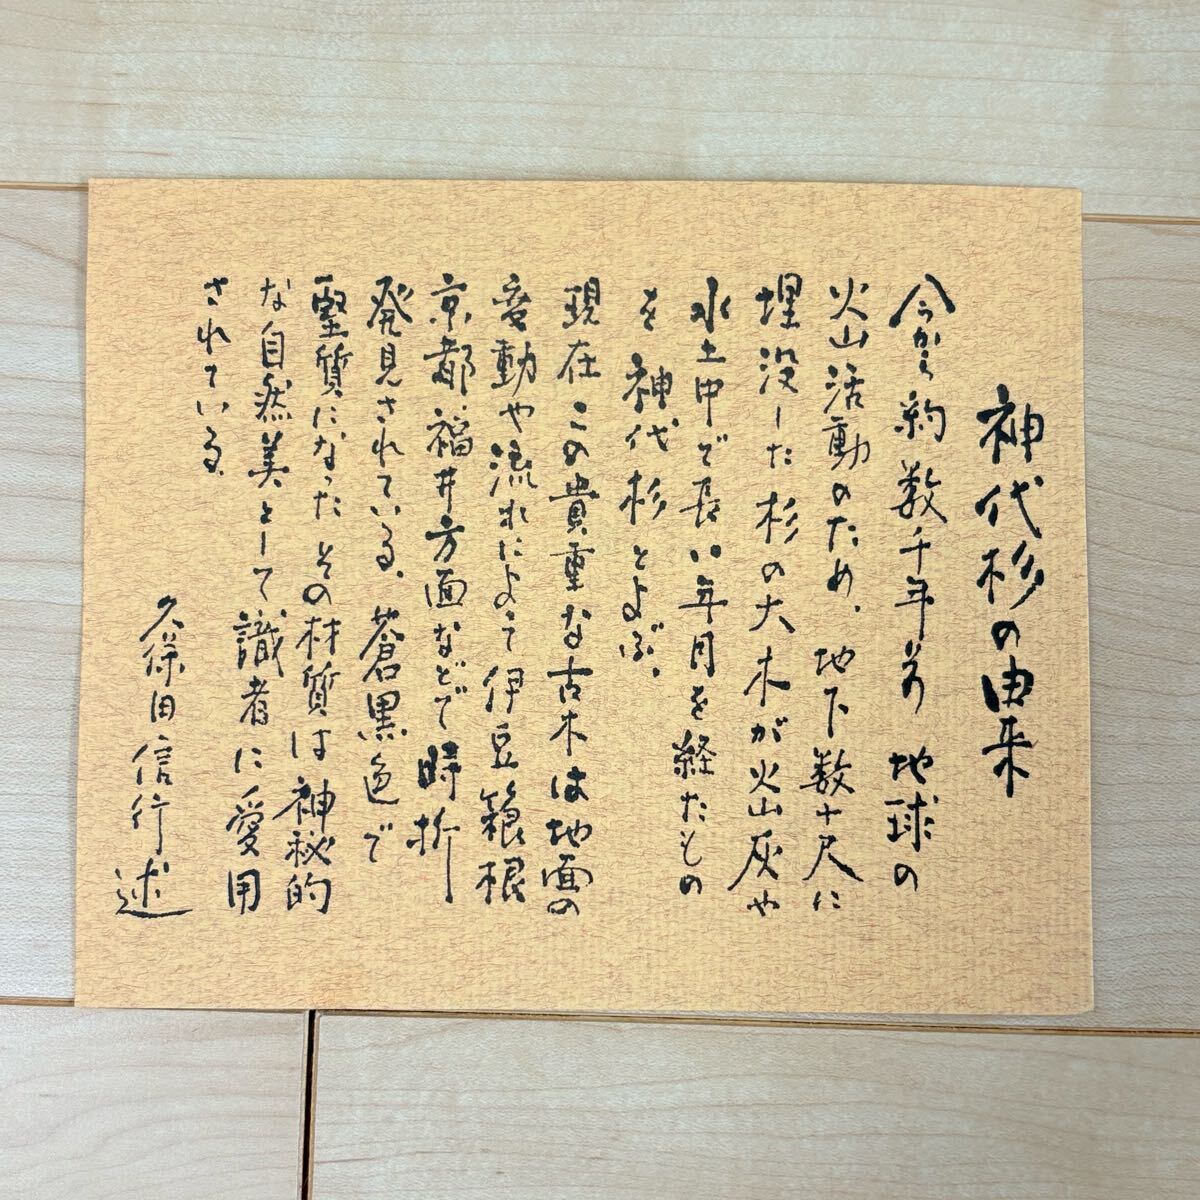 神代杉の由来
今から約数千年前 地球の
火山活動のため、地下数十尺に
埋没した杉の大木が火山灰や
水土中で長い年月を経たもの
を神代杉とよぶ。
現在この貴重な古木は地面の
変動や流れによって伊豆箱根
京都、福井方面などで時折
発見されている。蒼黒色で
堅質になったその材質は神秘的
な自然美として識者に愛用
されている。
久保田信行述